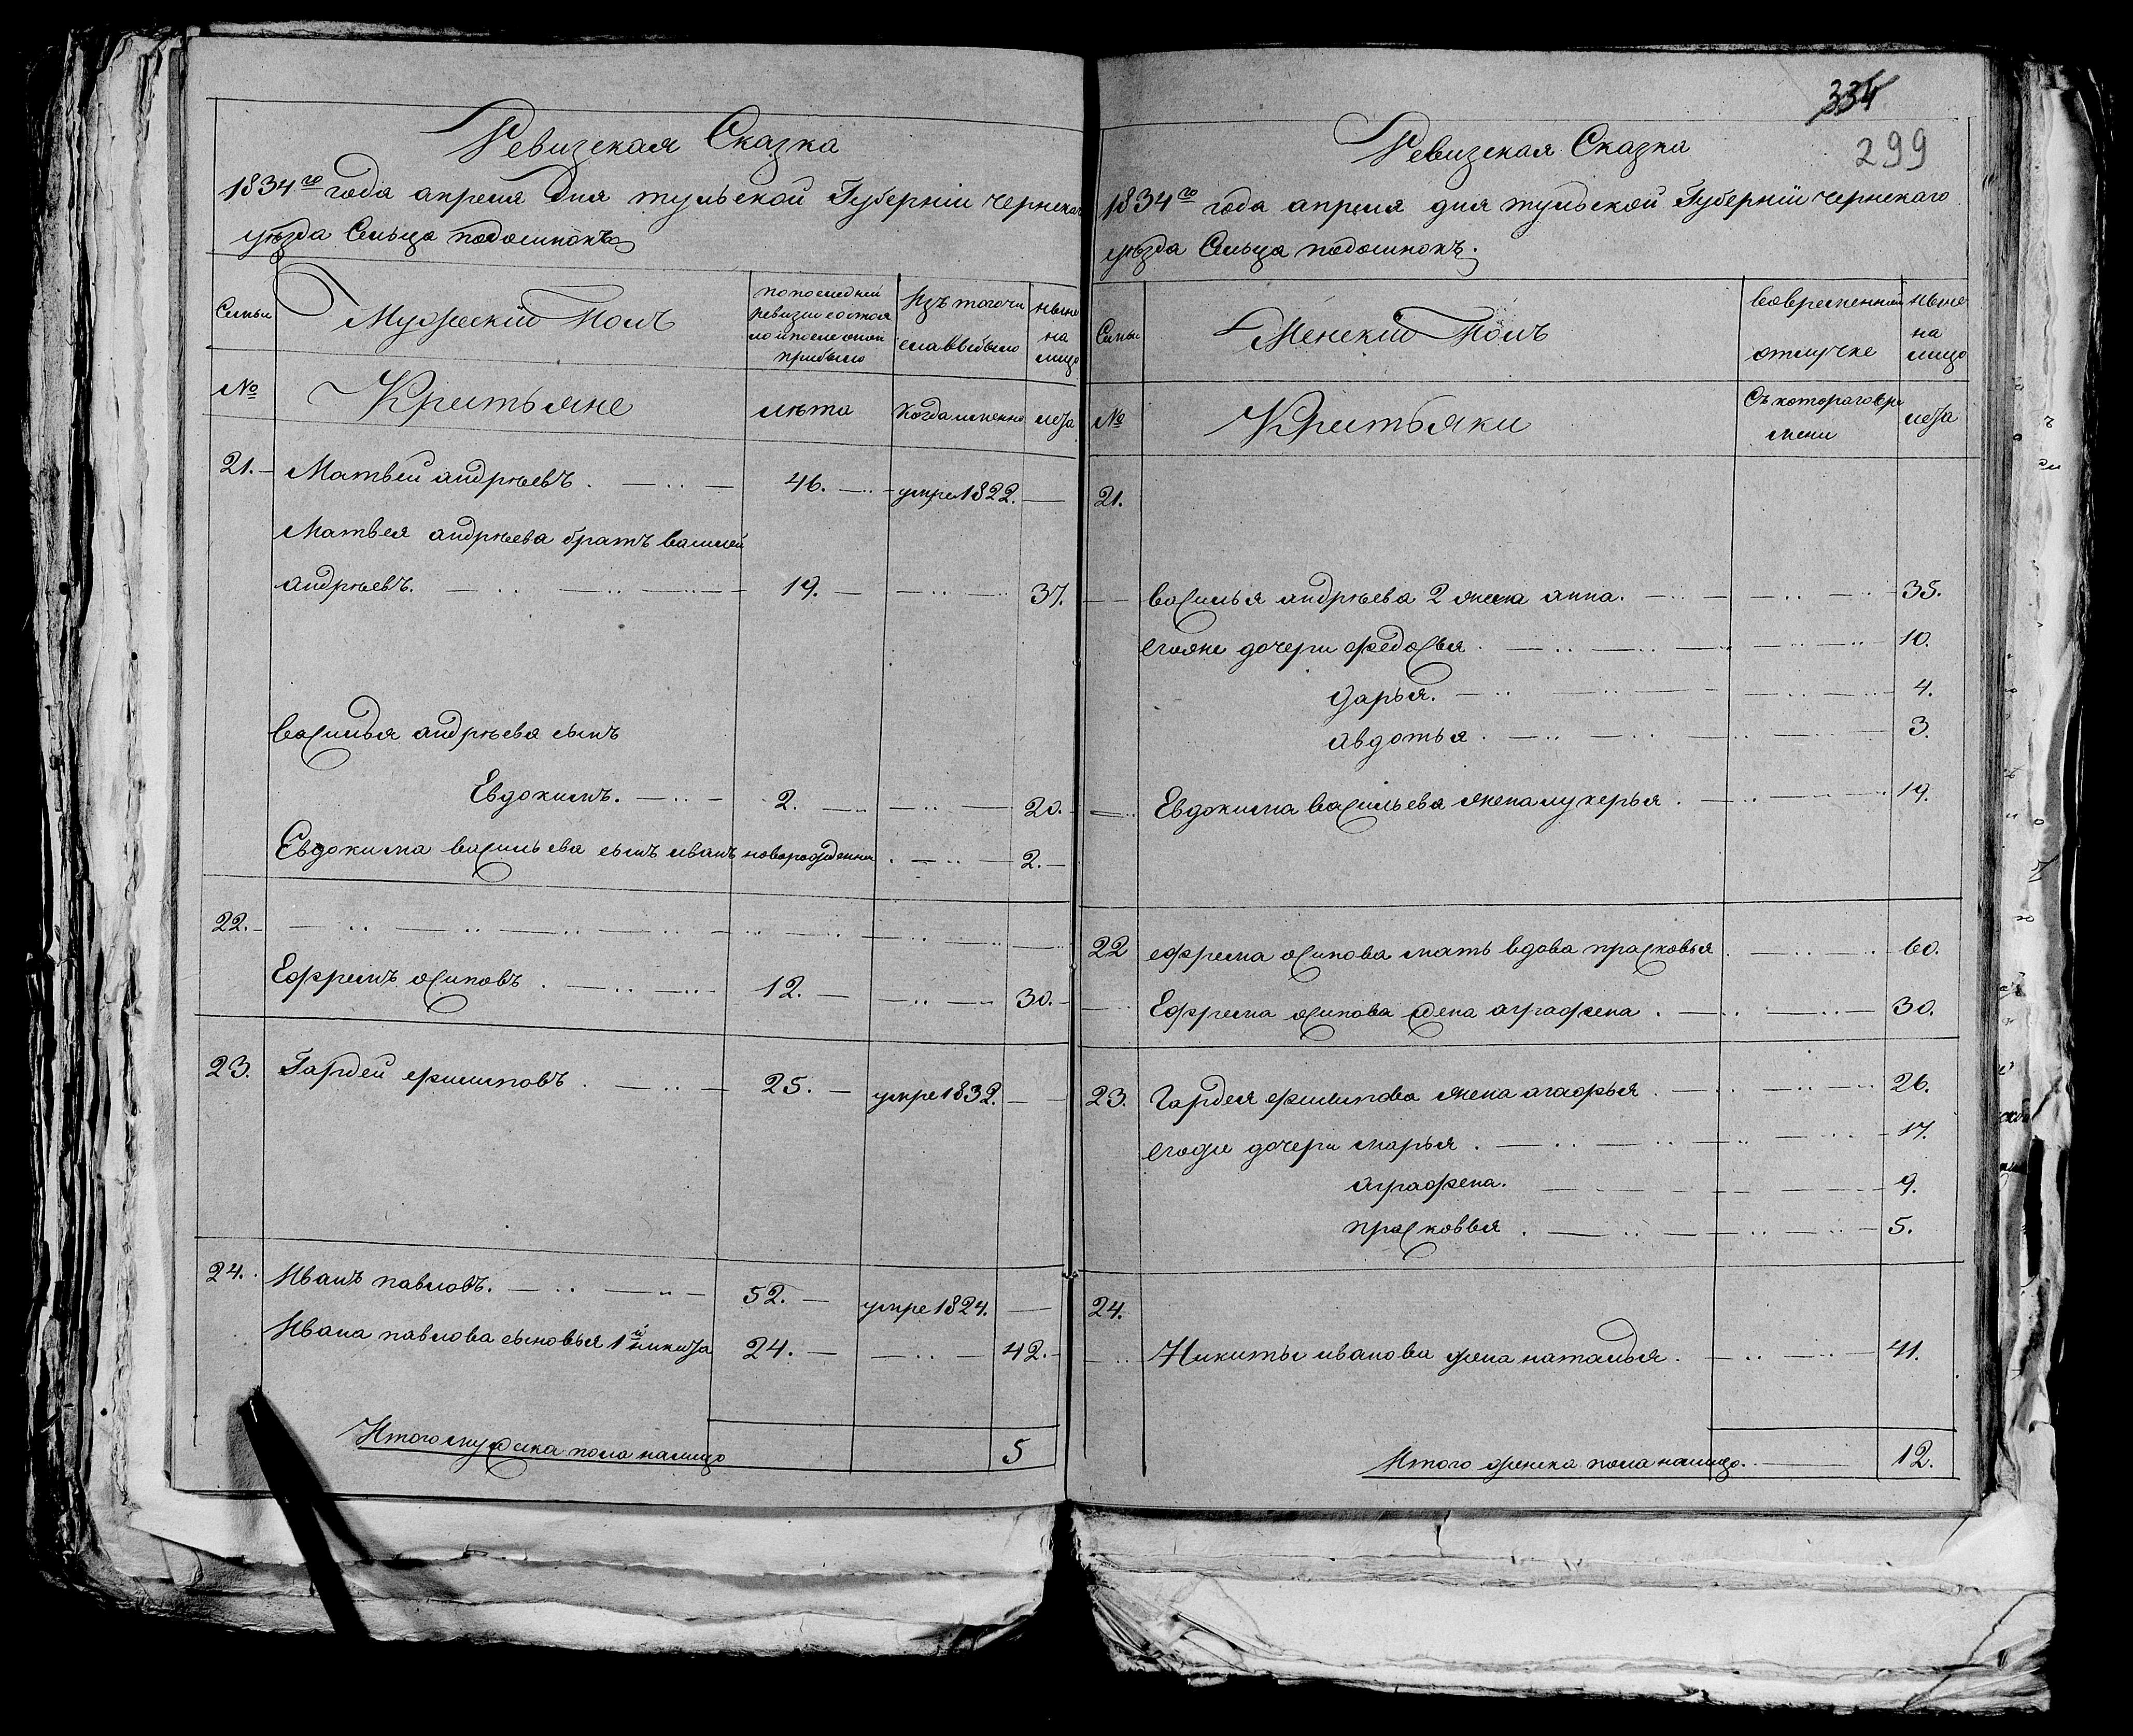 Ревизская Сказка
1834го года апреля дня тульской Губернiи чернскаго
уѣзда Сельца подосинокъ
Семьи
Мужескiй Полъ
по последней ревизiи состояло и после оной прибыло
Изъ того числа выбыло
ныне на лицо
№
Кристьяне
лѣта
когда именно
лета
21. Матвей андрѣевъ. 46. умре 1822.
Матвея андрѣева братъ василей
андрѣевъ. 19. 37.
василья андрѣева сынъ
Евдокимъ. 2. 20.
Евдокима васильева сынъ иванъ новорожденны 2.
22.
Ефремъ осиповъ. 12. 30.
23. Гардей филиповъ. 25. умре 1832.
24. Иванъ павловъ. 52. умре 1824.
Ивана павлова сыновья 1й никита 24. 42.
Итого мужска пола налицо 5
334
299
Ревизская Сказка
1834го года апреля дня тульской Губернiи чернскаго
уѣзда Сельца подосинокъ.
Семьи
Женскiй Полъ
во временной отлучке
ныне на лицо
№
Кристьяки
Съ котораго вре
мени
лета
21.
василья андрѣева 2 жена анна. 35.
егоже дочери федосья. 10.
дарья. 4.
авдотья. 3.
Евдокима васильева жена лукерья. 19.
22 ефрема осипова мать вдова прасковья. 60.
Ефрема осипова жена аграфена. 30.
23. Гардея филипова жена агафья. 26.
егоже дочери марья. 17.
аграфена. 9.
прасковья. 5.
24.
Никиты иванова жена наталья. 41.
Итого женска пола налицо. 12.